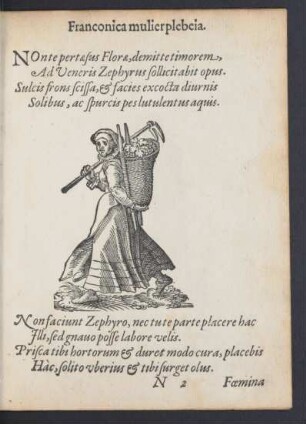 Franconica mulier plebeia.
NOn te pertæsus Flora, demitte timorem,
Ad Veneris Zephyrus sollicitabit opus.
Sulcis frons scissa, & facies excocta diurnis
Solibus, ac spurcis pes lutulentus aquis.
Non faciunt Zephyro, nec tu te parte placere hac
Illi, sed gnauo posse labore velis.
Prisca tibi hortorum & duret modo cura, placebis
Hàc, solito vberius & tibi surget olus.
N 2 Fœmina